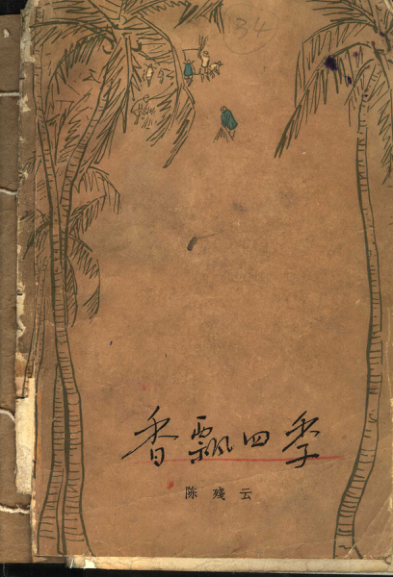 34
香飘四季
陈残云